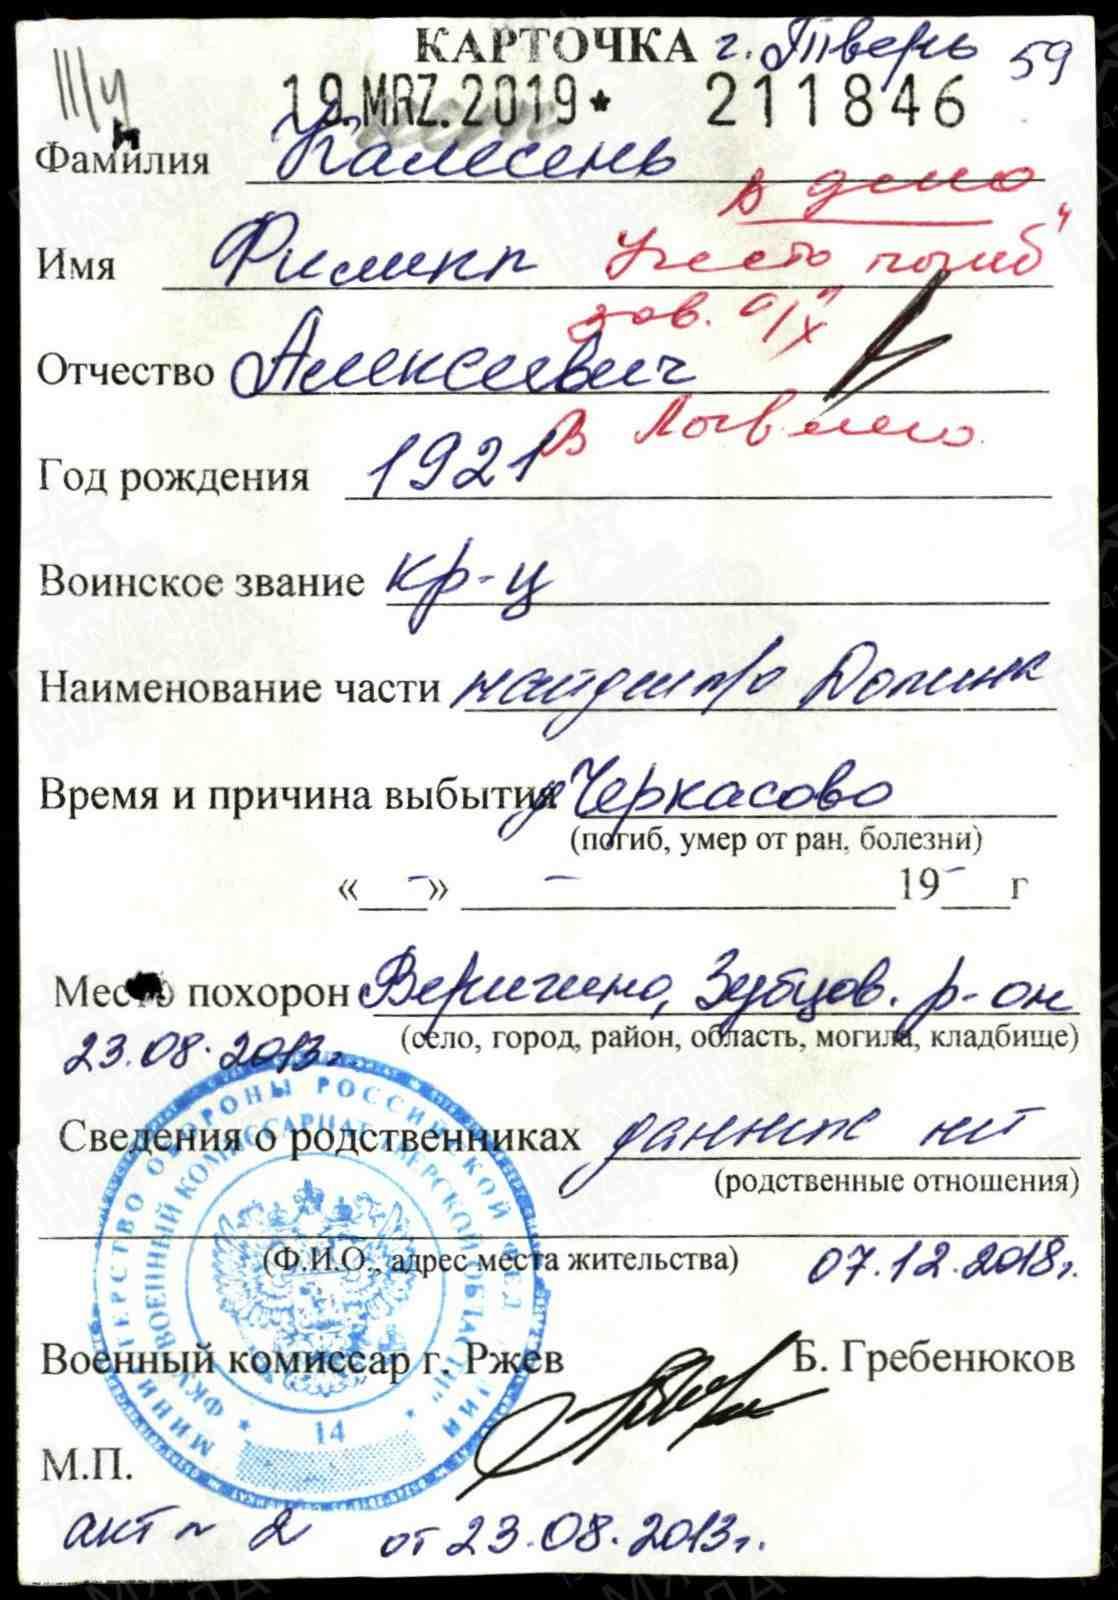 КАРТОЧКА г. Тверь 59
19. MRZ. 2019 * 211846
Фамилия Калесень
в дело
Имя Филипп "место погиб"
зав. "с/х"
Отчество Алексеевич
в
Год рождения 1921
Воинское звание кр-ц
Наименование части
Время и причина выбытия д Черкасово
(погиб, умер от ран, болезни)
« - » - 19 - г
Место похорон Веригино, Зубцов. р-он
23.08.2013г. (село, город, район, область, могила, кладбище)
Сведения о родственниках данных нет
(родственные отношения)
(Ф.И.О., адрес места жительства) 07.12.2018г.
Военный комиссар г. Ржев Б. Гребенюков
14
М.П.
акт № 2 от 23.08.2013г.
МИНИСТЕРСТВО ОБОРОНЫ РОССИЙСКОЙ ФЕДЕРАЦИИ
ФКУ "ВОЕННЫЙ КОМИССАРИАТ ТВЕРСКОЙ ОБЛАСТИ"